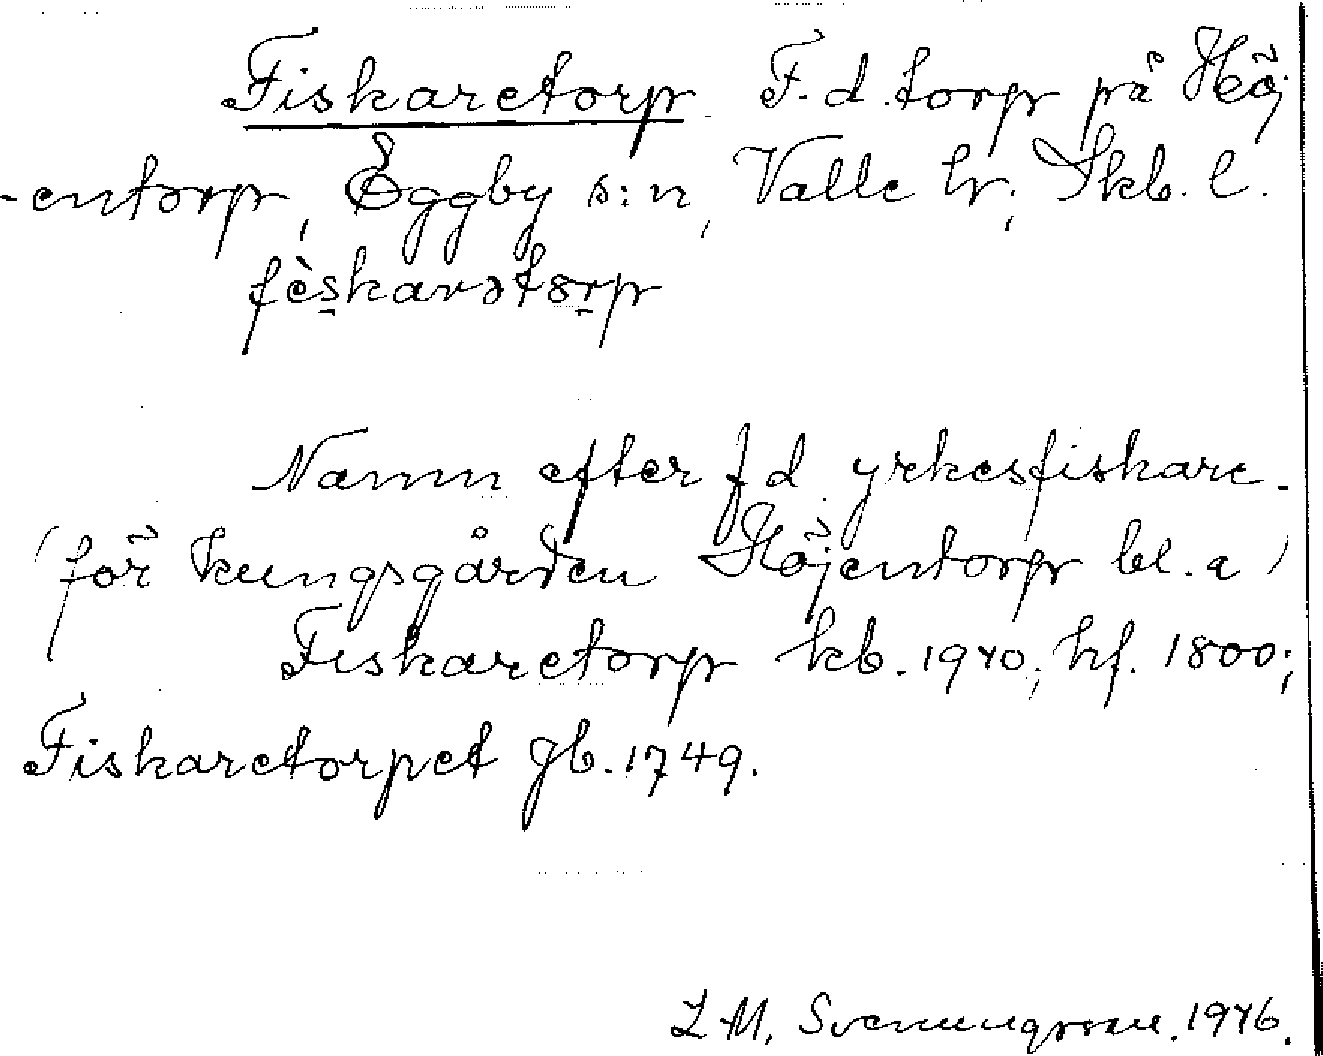 Fiskaretorp F.d. torp på Höj
-entorp, Eggby s:n, Valle hr, Skb. l.
fèskarətȣrp
Namn efter f d yrkesfiskare.
(för kungsgården Höjentorp bl.a)
Fiskaretorp kb. 1940; hf. 1800;
Fiskaretorpet gb. 1749.
L M, Svenungsson. 1946.